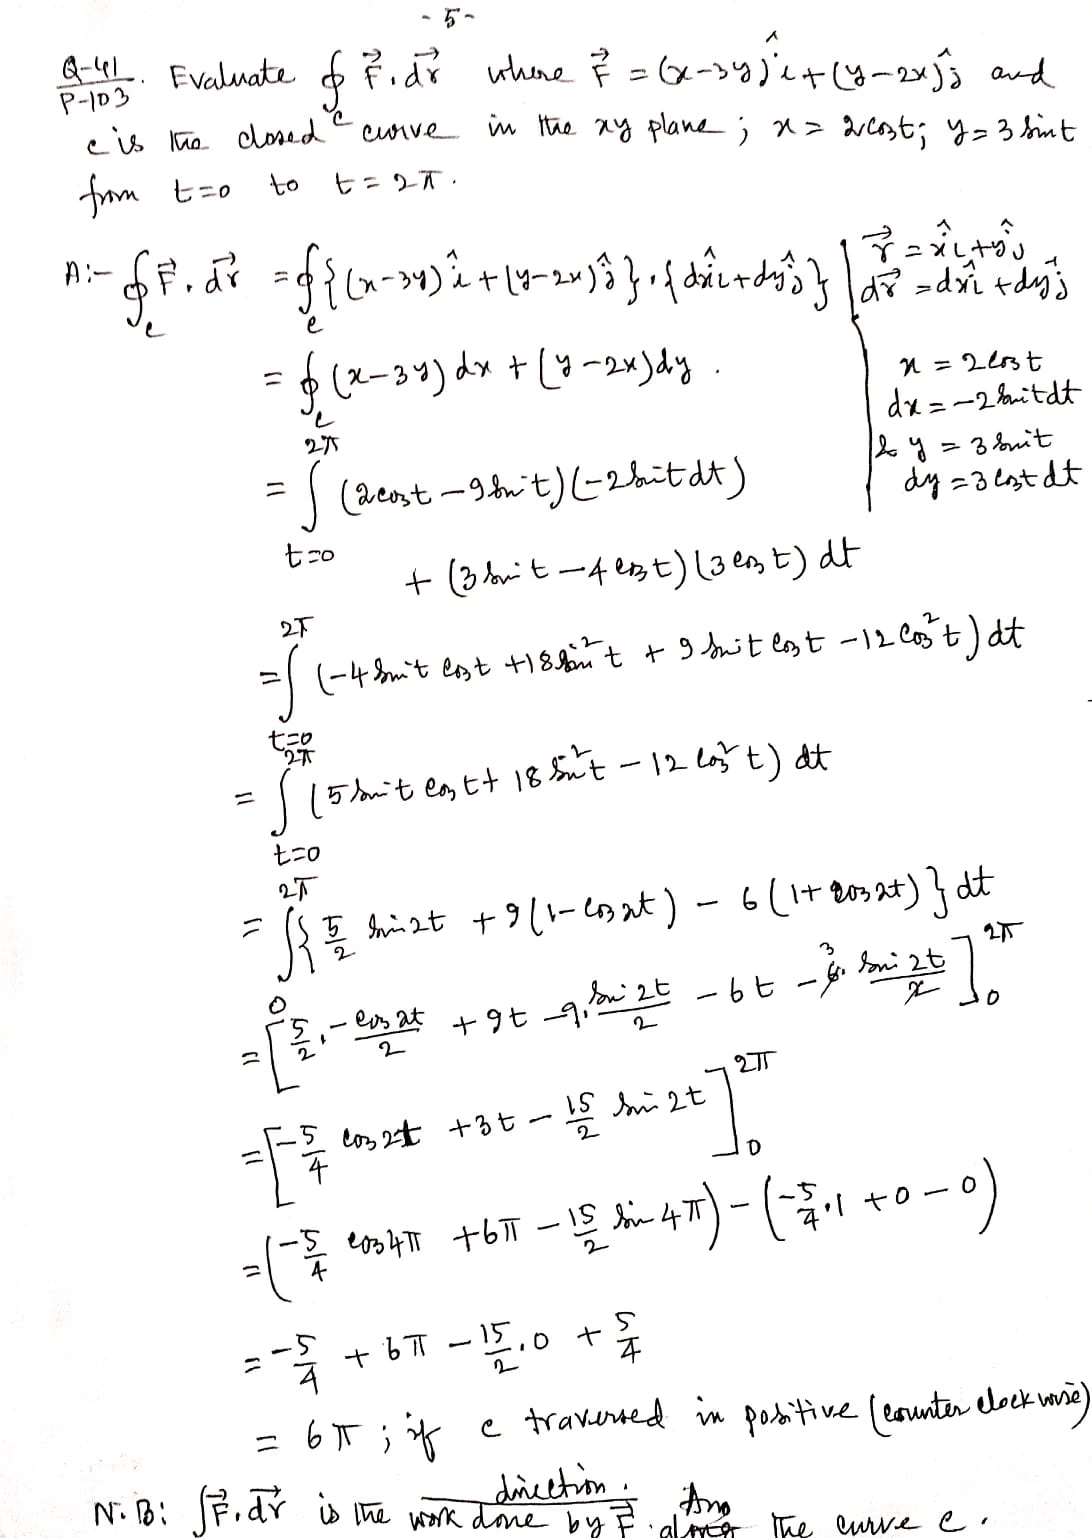 - 5 -
Q-41. Evaluate ∮_c F⃗.dr⃗ where F⃗ = (x-3y)î + (y-2x)ĵ and
P-103
c is the closed curve in the xy plane ; x = 2cost; y = 3 sint
from t=0 to t = 2π.
A:- ∮_c F⃗.dr⃗ = ∮_c {(x-3y)î + (y-2x)ĵ}.{dxî+dyĵ} | r⃗ = xî+yĵ
dr⃗ = dxî + dyĵ
= ∮_c (x-3y) dx + (y-2x)dy .
x = 2cost
dx = -2sint dt
& y = 3 sint
dy = 3 cost dt
= ∫_{t=0}^{2π} (2cost - 9sint)(-2sint dt)
+ (3sint - 4cost)(3cost) dt
= ∫_{t=0}^{2π} (-4sint cost + 18sin²t + 9sint cost - 12cos²t) dt
= ∫_{t=0}^{2π} (5sint cost + 18sin²t - 12cos²t) dt
= ∫_0^{2π} {5/2 sin2t + 9(1-cos2t) - 6(1+cos2t)} dt
= [5/2 . -cos2t/2 + 9t - 9.sin2t/2 - 6t - 6̶ 3. sin2t/2̶]_0^{2π}
= [-5/4 cos2t + 3t - 15/2 sin2t]_0^{2π}
= (-5/4 cos4π + 6π - 15/2 sin4π) - (-5/4.1 + 0 - 0)
= -5/4 + 6π - 15/2.0 + 5/4
= 6π ; if c traversed in positive (counter clockwise)
direction. Ans
N.B: ∫F⃗.dr⃗ is the work done by F⃗ along the curve c.